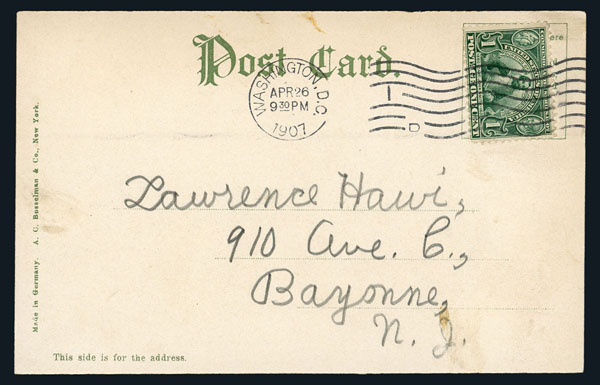 Post Card.
WASHINGTON, D.C.
APR 26
9 30 PM
1907
D
ere
1
POSTAGE ONE CENT
Lawrence Hawi,
910 Ave. C.,
Bayonne,
N. J.
Made in Germany. A. C. Bosselman & Co., New York.
This side is for the address.